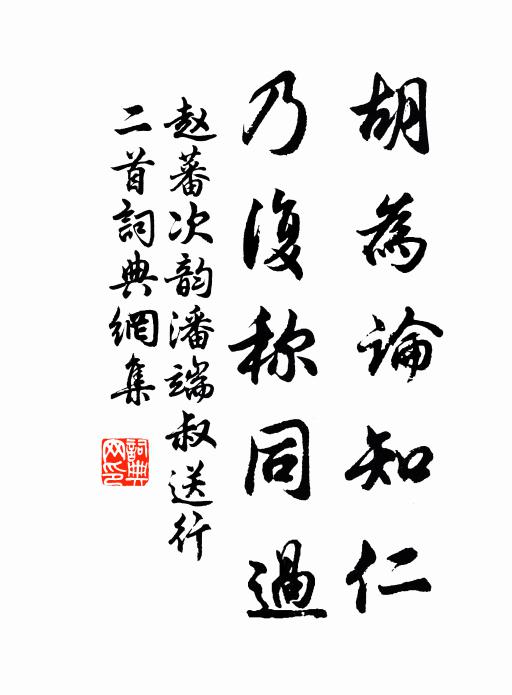 胡為論知仁
乃復称同過
赵蕃次韵潘端叔送行
二首詞典網集
詞典
网印